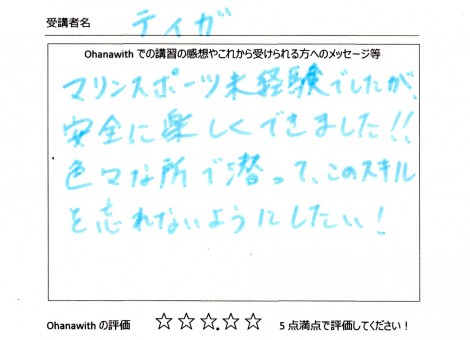 受講者名 ティガ
Ohanawith での講習の感想やこれから受けられる方へのメッセージ等
マリンスポーツ未経験でしたが、
安全に楽しくできました!!
色々な所で潜って、このスキル
を忘れないようにしたい!
Ohanawith の評価 ☆☆☆☆☆ 5 点満点で評価してください!